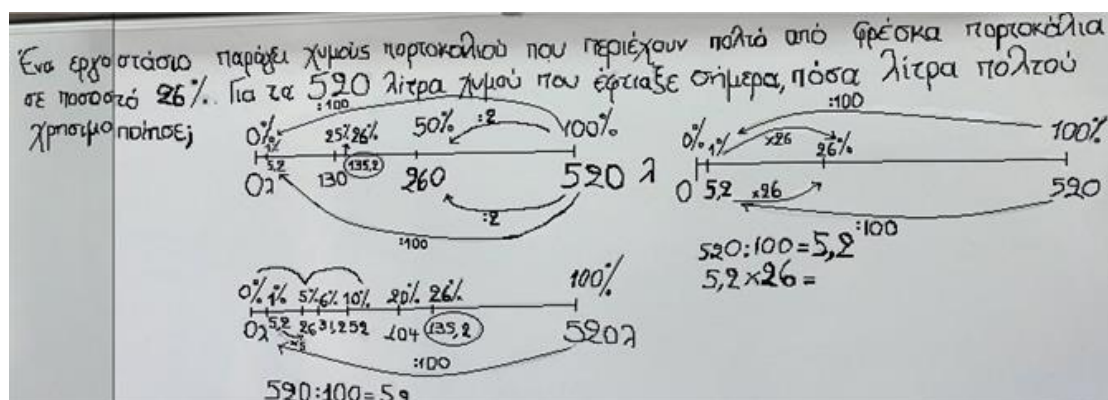 Ένα εργοστάσιο παράγει χυμούς πορτοκαλιού που περιέχουν πολτό από φρέσκα πορτοκάλια
σε ποσοστό 26%. Για τα 520 λίτρα χυμού που έφτιαξε σήμερα, πόσα λίτρα πολτού
χρησιμοποίησε;
:100
:2
0% 1% 25% 26% 50% 100%
0λ 5,2 130 135,2 260 520 λ
:2
:100
:100
0% 1% ×26 26% 100%
0 5,2 ×26 520
:100
520:100=5,2
5,2×26=
0% 1% 5% 6% 10% 20% 26% 100%
0λ 5,2 26 31,2 52 104 135,2 520λ
×5
:100
520:100=5,2